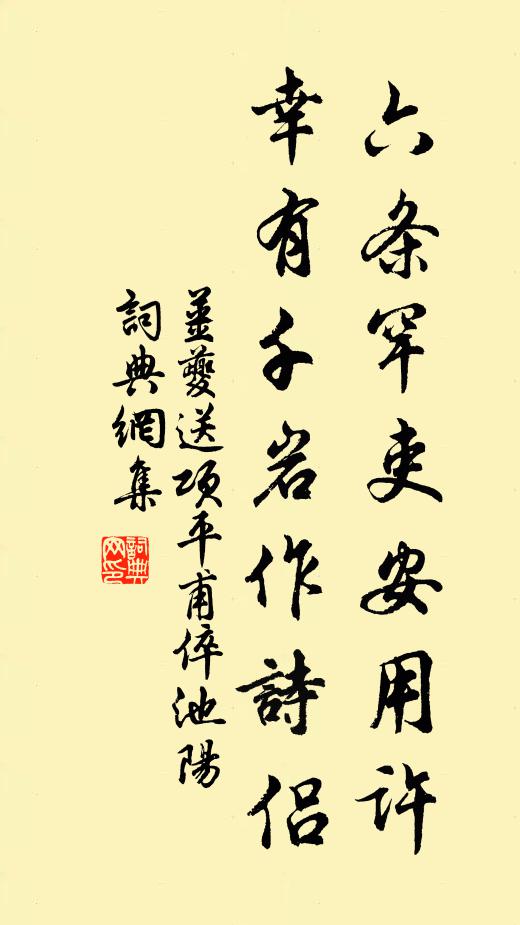 六条罕吏安用许
幸有千岩作詩侣
姜夔送项平甫倅池陽
詞典網集
詞典网印